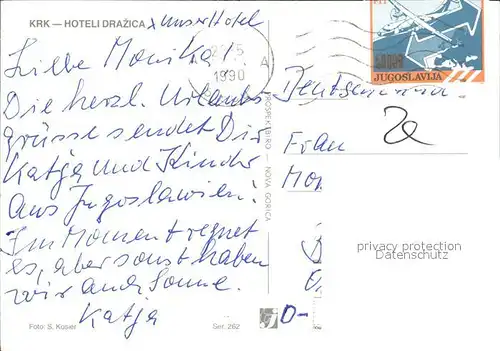 KRK — HOTELI DRAŽICA x unser Hotel
Liebe Monika!
Die herzl. Urlaubs-
grüsse sendet Dir
Katja und Kinder
aus Jugoslawien!
Im Moment regnet
es, aber sonst haben
wir auch Sonne.
Katja
Foto: S. Kosier
Ser. 262
1990
A
PROSPEKTBIRO — NOVA GORICA
PTT
JUGOSLAVIJA
Frau
Mon
D-
privacy protection
Datenschutz